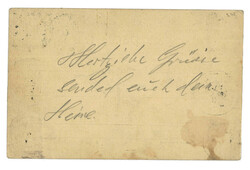 Herzliche Grüsse
sendet euch dein